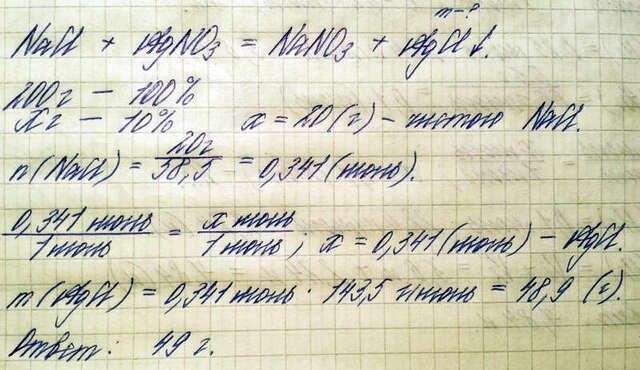 m-?
NaCl + AgNO3 = NaNO3 + AgCl ↓.
200г – 100%
xг – 10% x = 20 (г) – чистого NaCl.
n(NaCl) = 20г / 58,5 = 0,341 (моль).
0,341 моль / 1 моль = x моль / 1 моль ; x = 0,341 (моль) – AgCl.
m(AgCl) = 0,341 моль · 143,5 г/моль = 48,9 (г).
Ответ: 49 г.